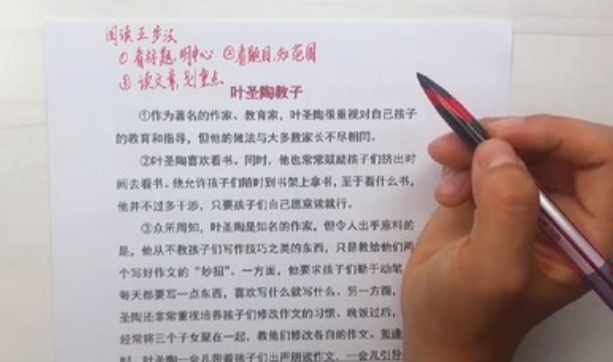 阅读三步法
①看标题,明中心 ②看题目,知范围
③读文章,划重点
叶圣陶教子
①作为著名的作家、教育家,叶圣陶很重视对自己孩子
的教育和指导,但他的做法与大多数家长不尽相同。
②叶圣陶喜欢看书。同时,他也常常鼓励孩子们挤出时
间去看书。他允许孩子们随时到书架上拿书,至于看什么书,
他并不过多干涉,只要孩子们自己愿意读就行。
③众所周知,叶圣陶是知名的作家,但令人出乎意料的
是,他从不教孩子们写作技巧之类的东西,只是教给他们两
个写好作文的“妙招”。一方面,他要求孩子们勤于动笔
每天都要写一点东西,喜欢写什么就写什么。另一方面,
圣陶还非常重视培养孩子们修改作文的习惯。晚饭过后,
经常将三个子女聚在一起,教他们修改各自的作文。每逢
时,叶圣陶一会儿带着孩子们出声朗读作文,一会儿引导